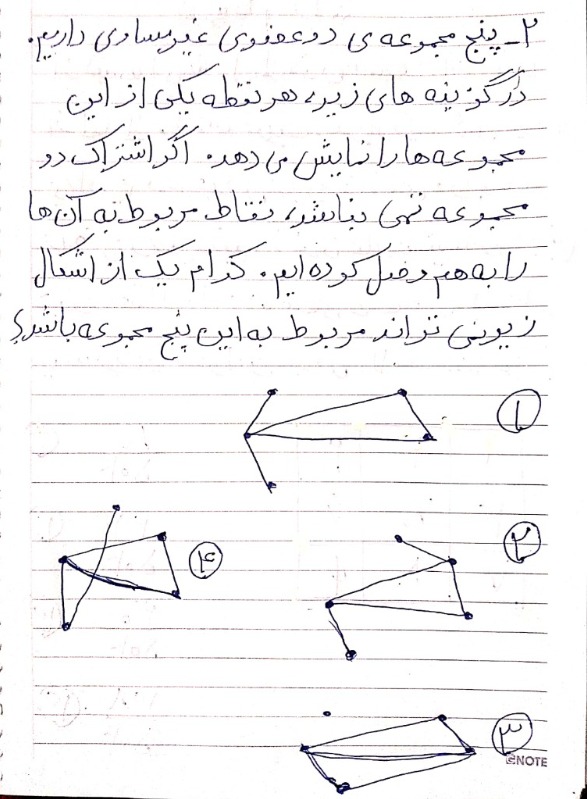 ۲- پنج مجموعه ی دو عضوی غیرمساوی داریم.
در گزینه های زیر، هر نقطه یکی از این
مجموعه ها را نمایش می دهد. اگر اشتراک دو
مجموعه تهی نباشد، نقاط مربوط به آن ها
را به هم وصل کرده ایم. کدام یک از اشکال
زیر نمی تواند مربوط به این پنج مجموعه باشد؟
۱
۲
۴
۳
NOTE